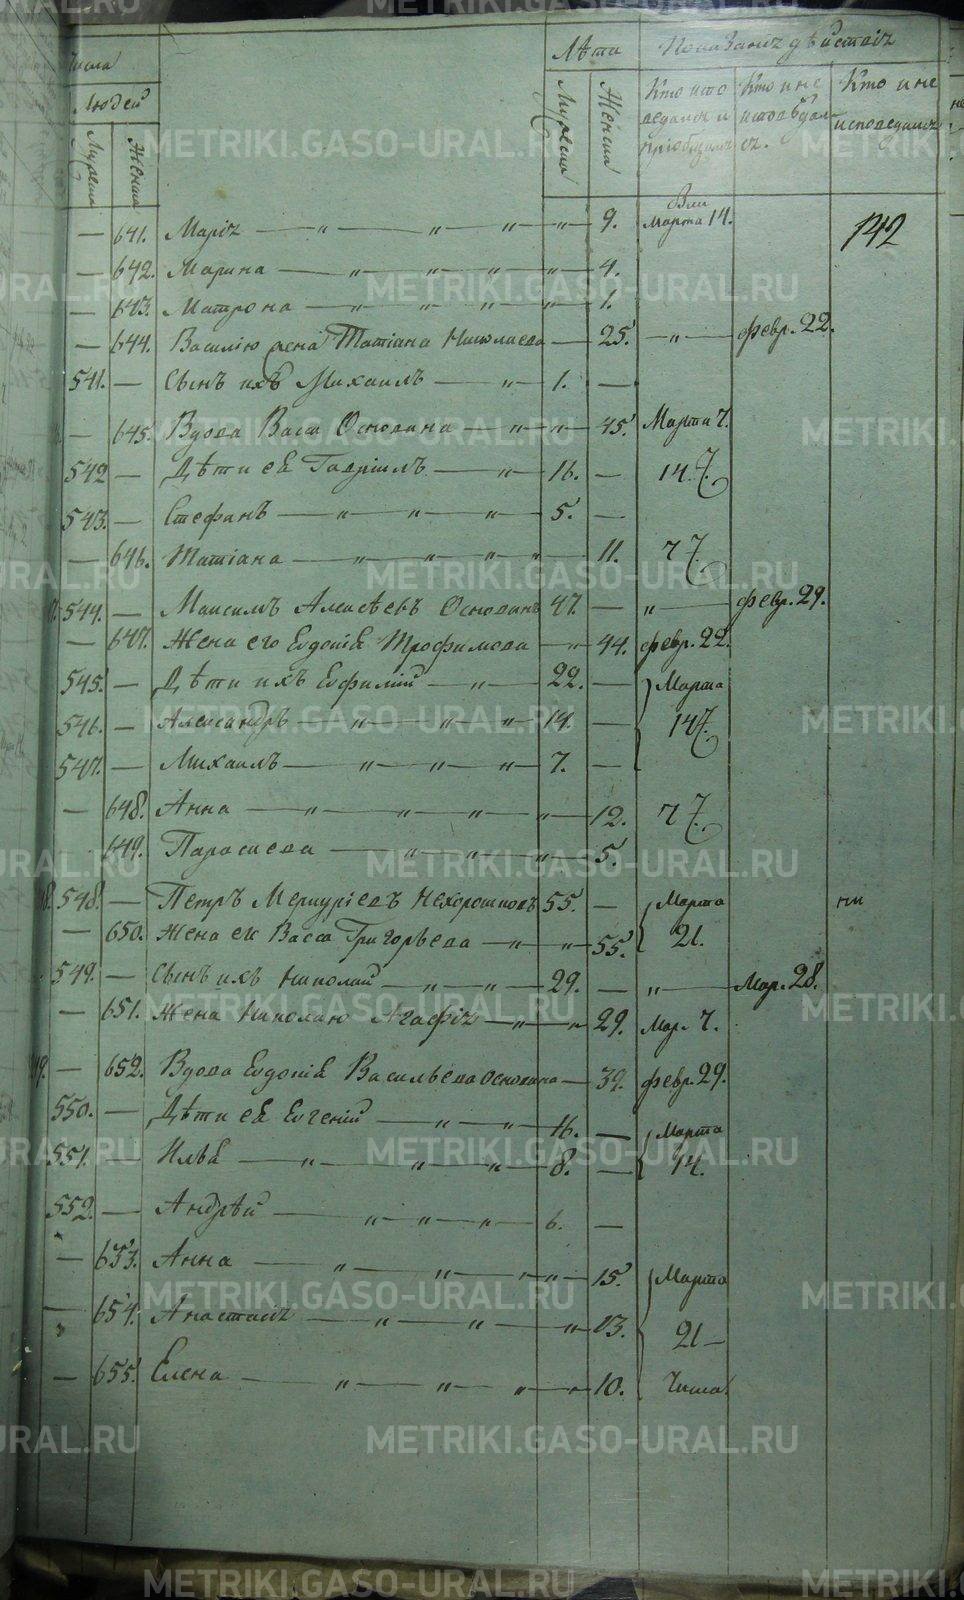 Числа Лѣта Показаніе дѣйствіе
Людей Мужеска Женска Кто испо Кто и не Кто и не
Мужеска Женска
142
— 641. Марія — 9. Марта 14.
— 642. Марина — 4.
— 643. Матрона — 1.
— 644. Василію жена Татіана Николаева — 25. — февр. 22.
541. — Сынъ ихъ Михаилъ — 1. —
— 645. Вдова Васса Осковина — 45. Марта 7.
542 — Дѣти ея Гавріилъ — 16. — 14.
543. — Стефанъ — 5. —
— 646. Татіана — 11. 7
544. — Максимъ Алексѣевъ — 47. — февр. 29.
— 647. Жена его Евдокія Трофимова — 44. февр. 22.
545. — Дѣти ихъ Евфимій — 22. — Марта
546. — Александръ — 14. — 14
547. — Михаилъ — 7. —
— 648. Анна — 12. 7
649. Параскева — 5.
548. — Петръ Меркуріевъ Нехорошковъ 55. — Марта ни
— 650. Жена ег Васса Григорьева — 55. 21.
549. — Сынъ ихъ Николай — 29. — Мар. 28.
— 651. Жена Николаю Агафія — 29. Мар. 7.
— 652. Вдова Евдокія Васильева — 39. февр. 29.
550. — Дѣти ея Евгеній — 16. — Марта
551. Илья — 8. — 14.
552. — Андрѣй — 6. —
— 653. Анна — 15. Марта
— 654. Анастасія — 13. 21 —
— 655. Елена — 10. Числа.
METRIKI.GASO-URAL.RU